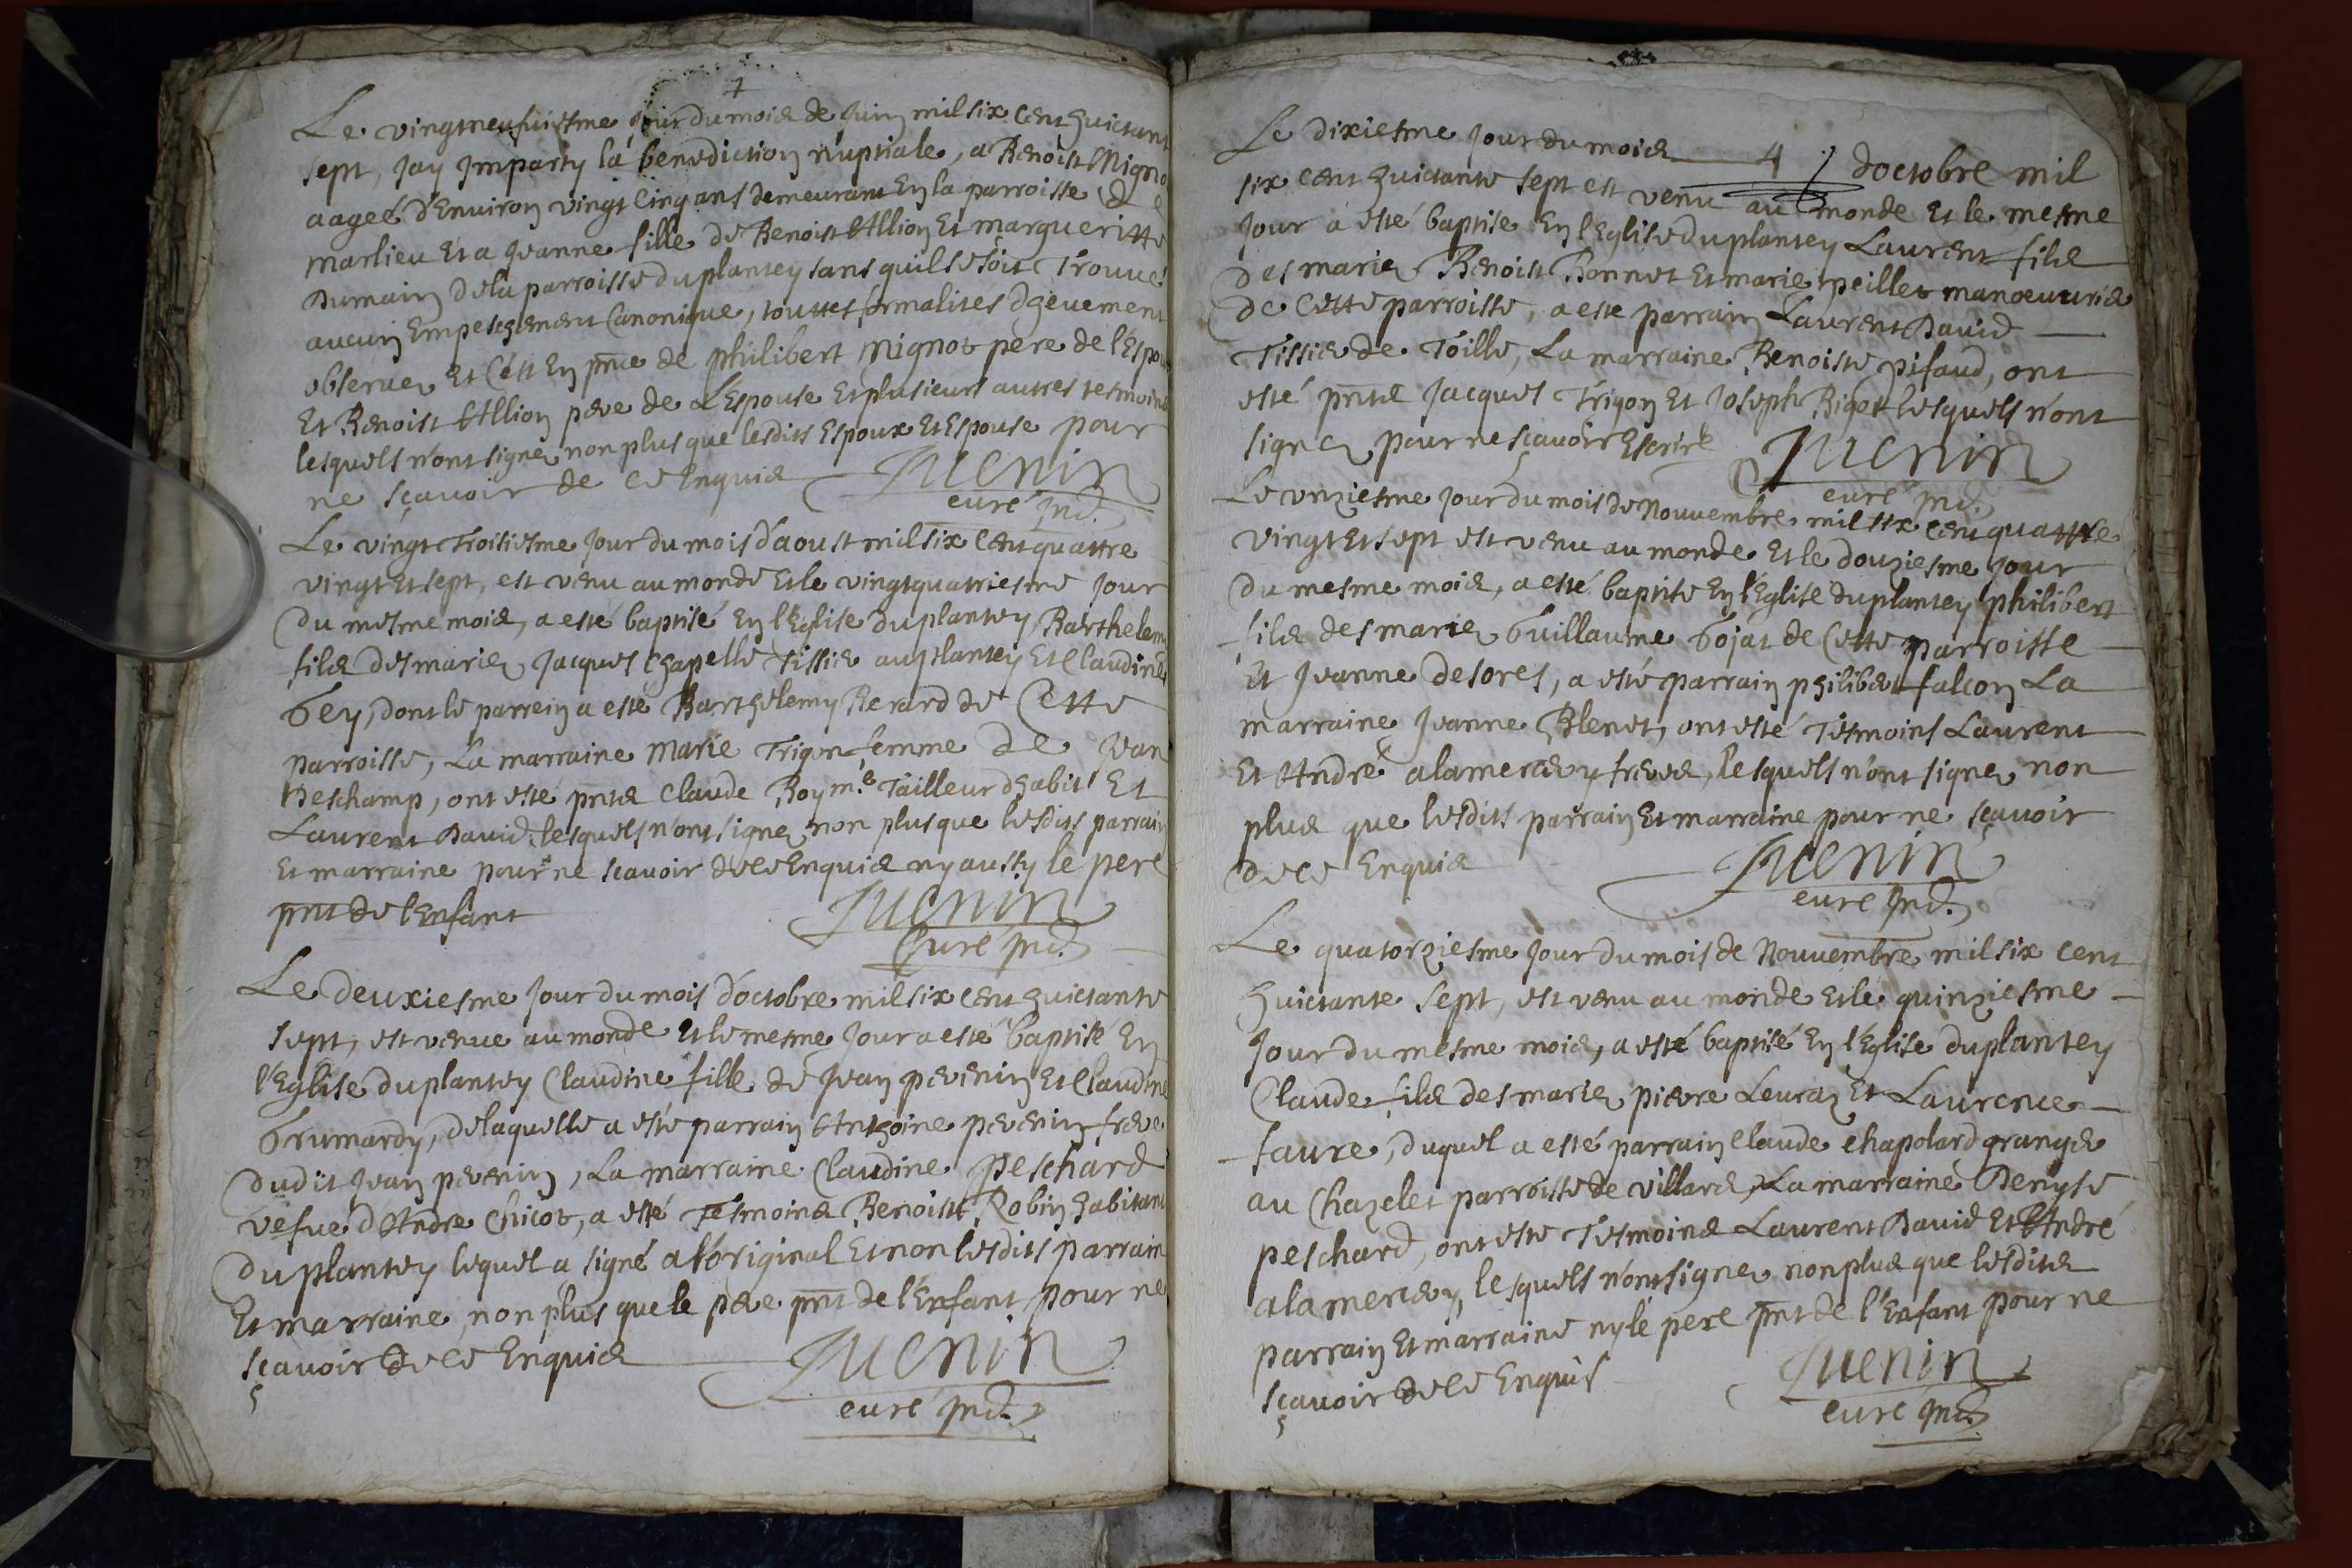 Le vingtneufuiesme jour du mois de Juin mil six cent huictant
sept, Jay Imparty la benediction nuptiale, a Benoist Migno
aageé d'Environ vingt cinq ans demeurant En la parroisse de
marlieu Et a Jeanne fille de Benoist Allion Et margueritte
Dumain de la parroisse du plantey sans quil se soit Trouué
aucun Empeschement Canonique, touttes formalités dheuement
obseruer Et C'est En pnce de philibert mignot pere de l'Espou
Et Benoist Allion pere de L'Espouse Et plusieurs autres tesmoins
lesquels n'ont signer non plus que lesdits Espoux Et Espouse pour
ne sçauoir de ce Enquis Juenin
curé ind.
Le vingt Troisiesme jour du mois d'aoust mil six cent quattre
vingt Et sept, est venu au monde Et le vingtquatriesme jour
du mesme mois, a esté baptisé En l'Eglise du plantey Barthelemy
fils des maries Jacques Chapelle Tissier au plantey Et Claudine
Gey, dont le parrein a esté Barthelemy Berard de Cette
parroisse, La marraine Marie Trigon femme de Jean
Deschamp, ont esté pnts Claude Roy me Tailleur d'habit Et
Laurent Dauid lesquels n'ont signer non plus que lesdits parrain
Et marraine pour ne scauoir de ce Enquis ny aussy le pere
pnt de l'Enfant Juenin
Curé ind.
Le deuxiesme jour du mois d'octobre mil six cent huictante
sept, est venue au monde Et le mesme jour a esté baptisé En
l'Eglise du plantey Claudine fille de Jean peuenin Et Claudine
Grumardy, de laquelle a esté parrain Anthoine peuenin frere
dudit Jean peuenin, La marraine Claudine peschard
vefue d'Andre Chicot, a esté Tesmoins Benoist Robin habitant
Du plantey lequel a signé a l'original Et non lesdits parrain
Et marraine, non plus que le pere pnt de l'Enfant pour ne
sçauoir de ce Enquis Juenin
curé ind.
4
Le dixiesme jour du mois d'octobre mil
six cent huictante sept est venu au monde Et le mesme
jour a esté baptise En l'Eglise du plantey Laurent fils
des maries Benoist Bonnet Et marie peillet manoeuuries
de Cette parroisse, a este parrain Laurent Dauid
Tissier de Toille, La marraine Benoiste pifaud, ont
esté pnts Jacques Trigon Et Joseph Bigot lesquels n'ont
signer pour ne scauoir Escrire Juenin
curé ind.
Le vnziesme jour du mois de Nouuembre mil six cent quattre
vingt Et sept est venu au monde Et le douziesme jour
du mesme mois, a esté baptise En l'Eglise du plantey philibert
fils des maries Guillaume Gojat de Cette parroisse
Et Jeanne desores, a esté parrain philibert falcon La
marraine Jeanne Blenet, ont esté Tesmoins Laurent
Et André alamercery freres, lesquels n'ont signer non
plus que lesdits parrain Et marraine pour ne sçauoir
de ce Enquis Juenin
curé ind.
Le quatorziesme jour du mois de Nouuembre mil six cent
huictante sept, est venu au monde Et le quinziesme
jour du mesme mois, a esté baptisé En l'Eglise du plantey
Claude fils des maries pierre Leuraz Et Laurence
faure, duquel a esté parrain Claude chapolard granger
au Chazelet parroisse de villars, La marraine Denyse
peschard, ont este Tesmoins Laurent Dauid Et André
alamercery, lesquels n'ont signer non plus que lesdits
parrain Et marraine ny le pere pnt de l'Enfant pour ne
sçauoir de ce Enquis Juenin
curé ind.